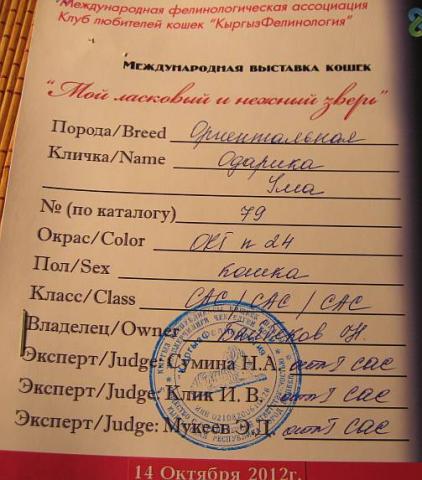 Международная фелинологическая ассоциация
Клуб любителей кошек "КыргызФелинология"
Международная выставка кошек
"Мой ласковый и нежный зверь"
Порода/Breed Ориентальная
Кличка/Name Одарика
Ума
№ (по каталогу) 79
Окрас/Color ОКТ n 24
Пол/Sex кошка
Класс/Class САС / САС / САС
Владелец/Owner Н.
Эксперт/Judge: Сумина Н.А. САС
Эксперт/Judge: Клик И. В. САС
Эксперт/Judge: Мукеев Э.Д. САС
14 Октября 2012г.